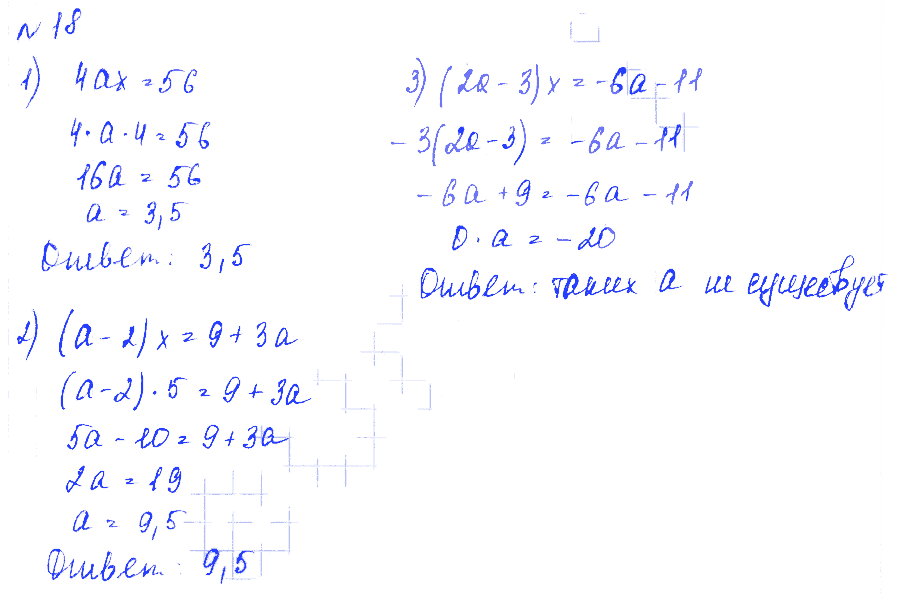 № 18
1) 4ax = 56
4·a·4 = 56
16a = 56
a = 3,5
Ответ: 3,5
2) (a-2)x = 9+3a
(a-2)·5 = 9+3a
5a-10 = 9+3a
2a = 19
a = 9,5
Ответ: 9,5
3) (2a-3)x = -6a-11
-3(2a-3) = -6a-11
-6a+9 = -6a-11
0·a = -20
Ответ: таких a не существует